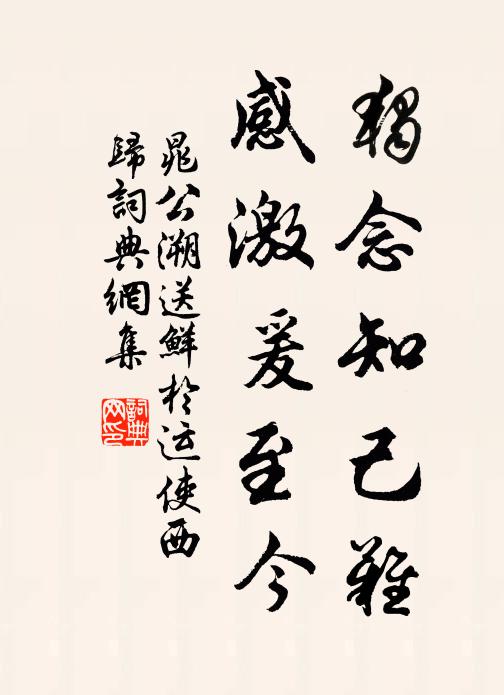 獨念知己難
感激爰至今
晁公溯送鮮於运使西
歸詞典網集
詞典
网印